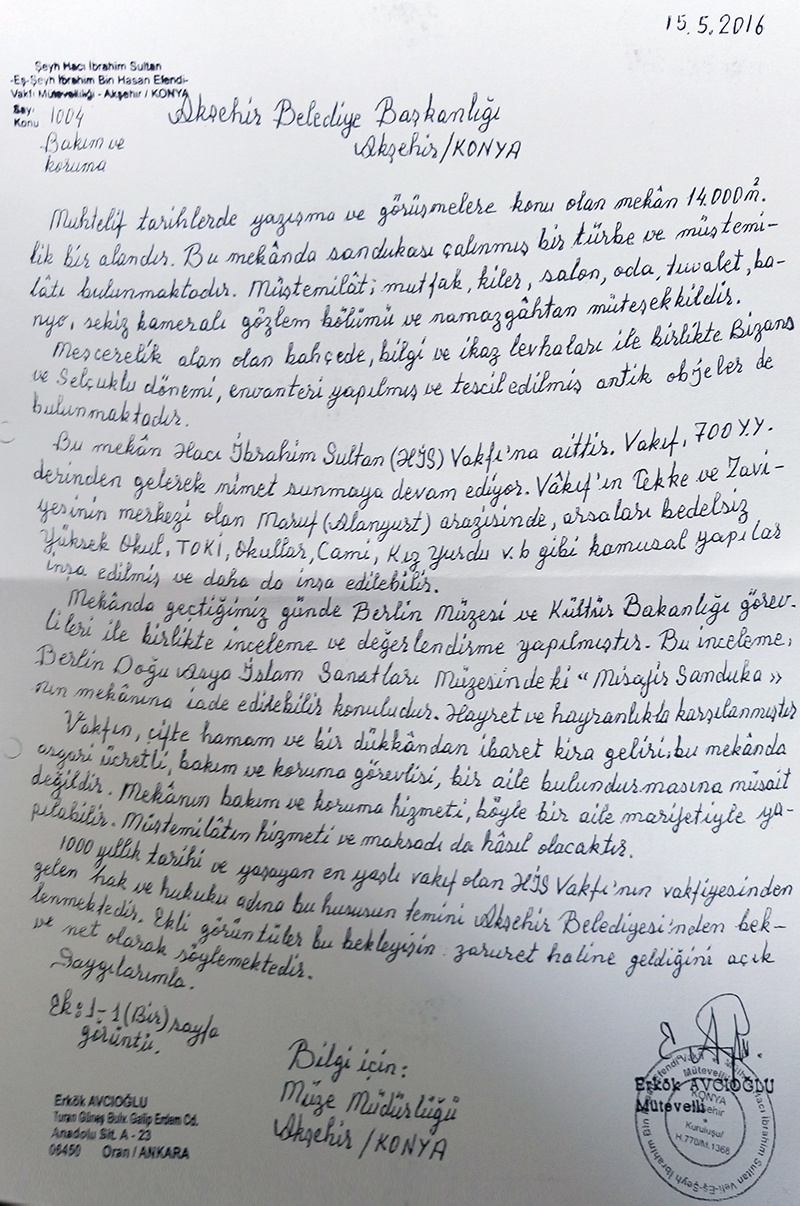 15.5.2016
Şeyh Hacı İbrahim Sultan
-Eş-Şeyh İbrahim Bin Hasan Efendi-
Vakfı Mütevelliliği - Akşehir / KONYA
Sayı 1004
Konu Bakım ve
koruma
Akşehir Belediye Başkanlığı
Akşehir/KONYA
Muhtelif tarihlerde yazışma ve görüşmelere konu olan mekân 14.000m².
lik bir alandır. Bu mekânda sandukası çalınmış bir türbe ve müştemi-
lâtı bulunmaktadır. Müştemilât; mutfak, kiler, salon, oda, tuvalet, ba-
nyo, sekiz kameralı gözlem bölümü ve namazgâhtan müteşekkildir.
Meşcerelik alan olan bahçede, bilgi ve ikaz levhaları ile birlikte Bizans
ve Selçuklu dönemi, envanteri yapılmış ve tescil edilmiş antik objeler de
bulunmaktadır.
Bu mekân Hacı İbrahim Sultan (HİS) Vakfı'na aittir. Vakıf, 700 Y.Y.
derinden gelerek nimet sunmaya devam ediyor. Vâkıf'ın Tekke ve Zavi-
yesinin merkezi olan Maruf (Alanyurt) arazisinde, arsaları bedelsiz
Yüksek Okul, TOKİ, Okullar, Cami, Kız Yurdu v.b gibi kamusal yapılar
inşa edilmiş ve daha da inşa edilebilir.
Mekânda geçtiğimiz günde Berlin Müzesi ve Kültür Bakanlığı görev-
lileri ile birlikte inceleme ve değerlendirme yapılmıştır. Bu inceleme,
Berlin Doğu Asya İslam Sanatları Müzesindeki "Misafir Sanduka"
nın mekânına iade edilebilir konuludur. Hayret ve hayranlıkla karşılanmıştır
Vakfın, çifte hamam ve bir dükkândan ibaret kira geliri; bu mekânda
asgari ücretli, bakım ve koruma görevlisi, bir aile bulundurmasına müsait
değildir. Mekânın bakım ve koruma hizmeti, böyle bir aile marifetiyle ya-
pılabilir. Müştemilâtın hizmeti ve maksadı da hâsıl olacaktır.
1000 yıllık tarihi ve yaşayan en yaşlı vakıf olan HİS Vakfı'nın vakfiyesinden
gelen hak ve hukuku adına bu hususun temini Akşehir Belediyesi'nden bek-
lenmektedir. Ekli görüntüler bu bekleyişin zaruret haline geldiğini açık
ve net olarak söylemektedir.
Saygılarımla.
Ek: 1-1 (Bir) sayfa
görüntü.
Bilgi için:
Müze Müdürlüğü
Akşehir/KONYA
Erkök AVCIOĞLU
Mütevelli
KONYA
Kuruluşu
H.770/M.1368
Erkök AVCIOĞLU
Turan Güneş Bulv. Galip Erdem Cd.
Anadolu Sit. A - 23
06450 Oran / ANKARA